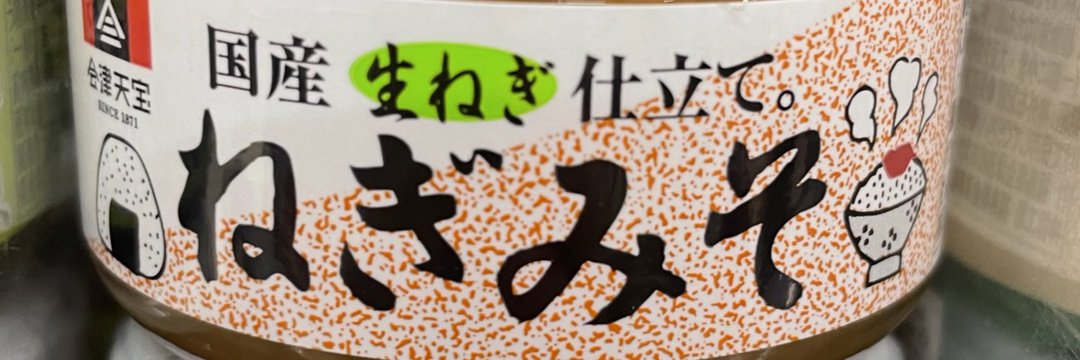 会津天宝
SINCE 1871
国産 生ねぎ 仕立て。
ねぎみそ